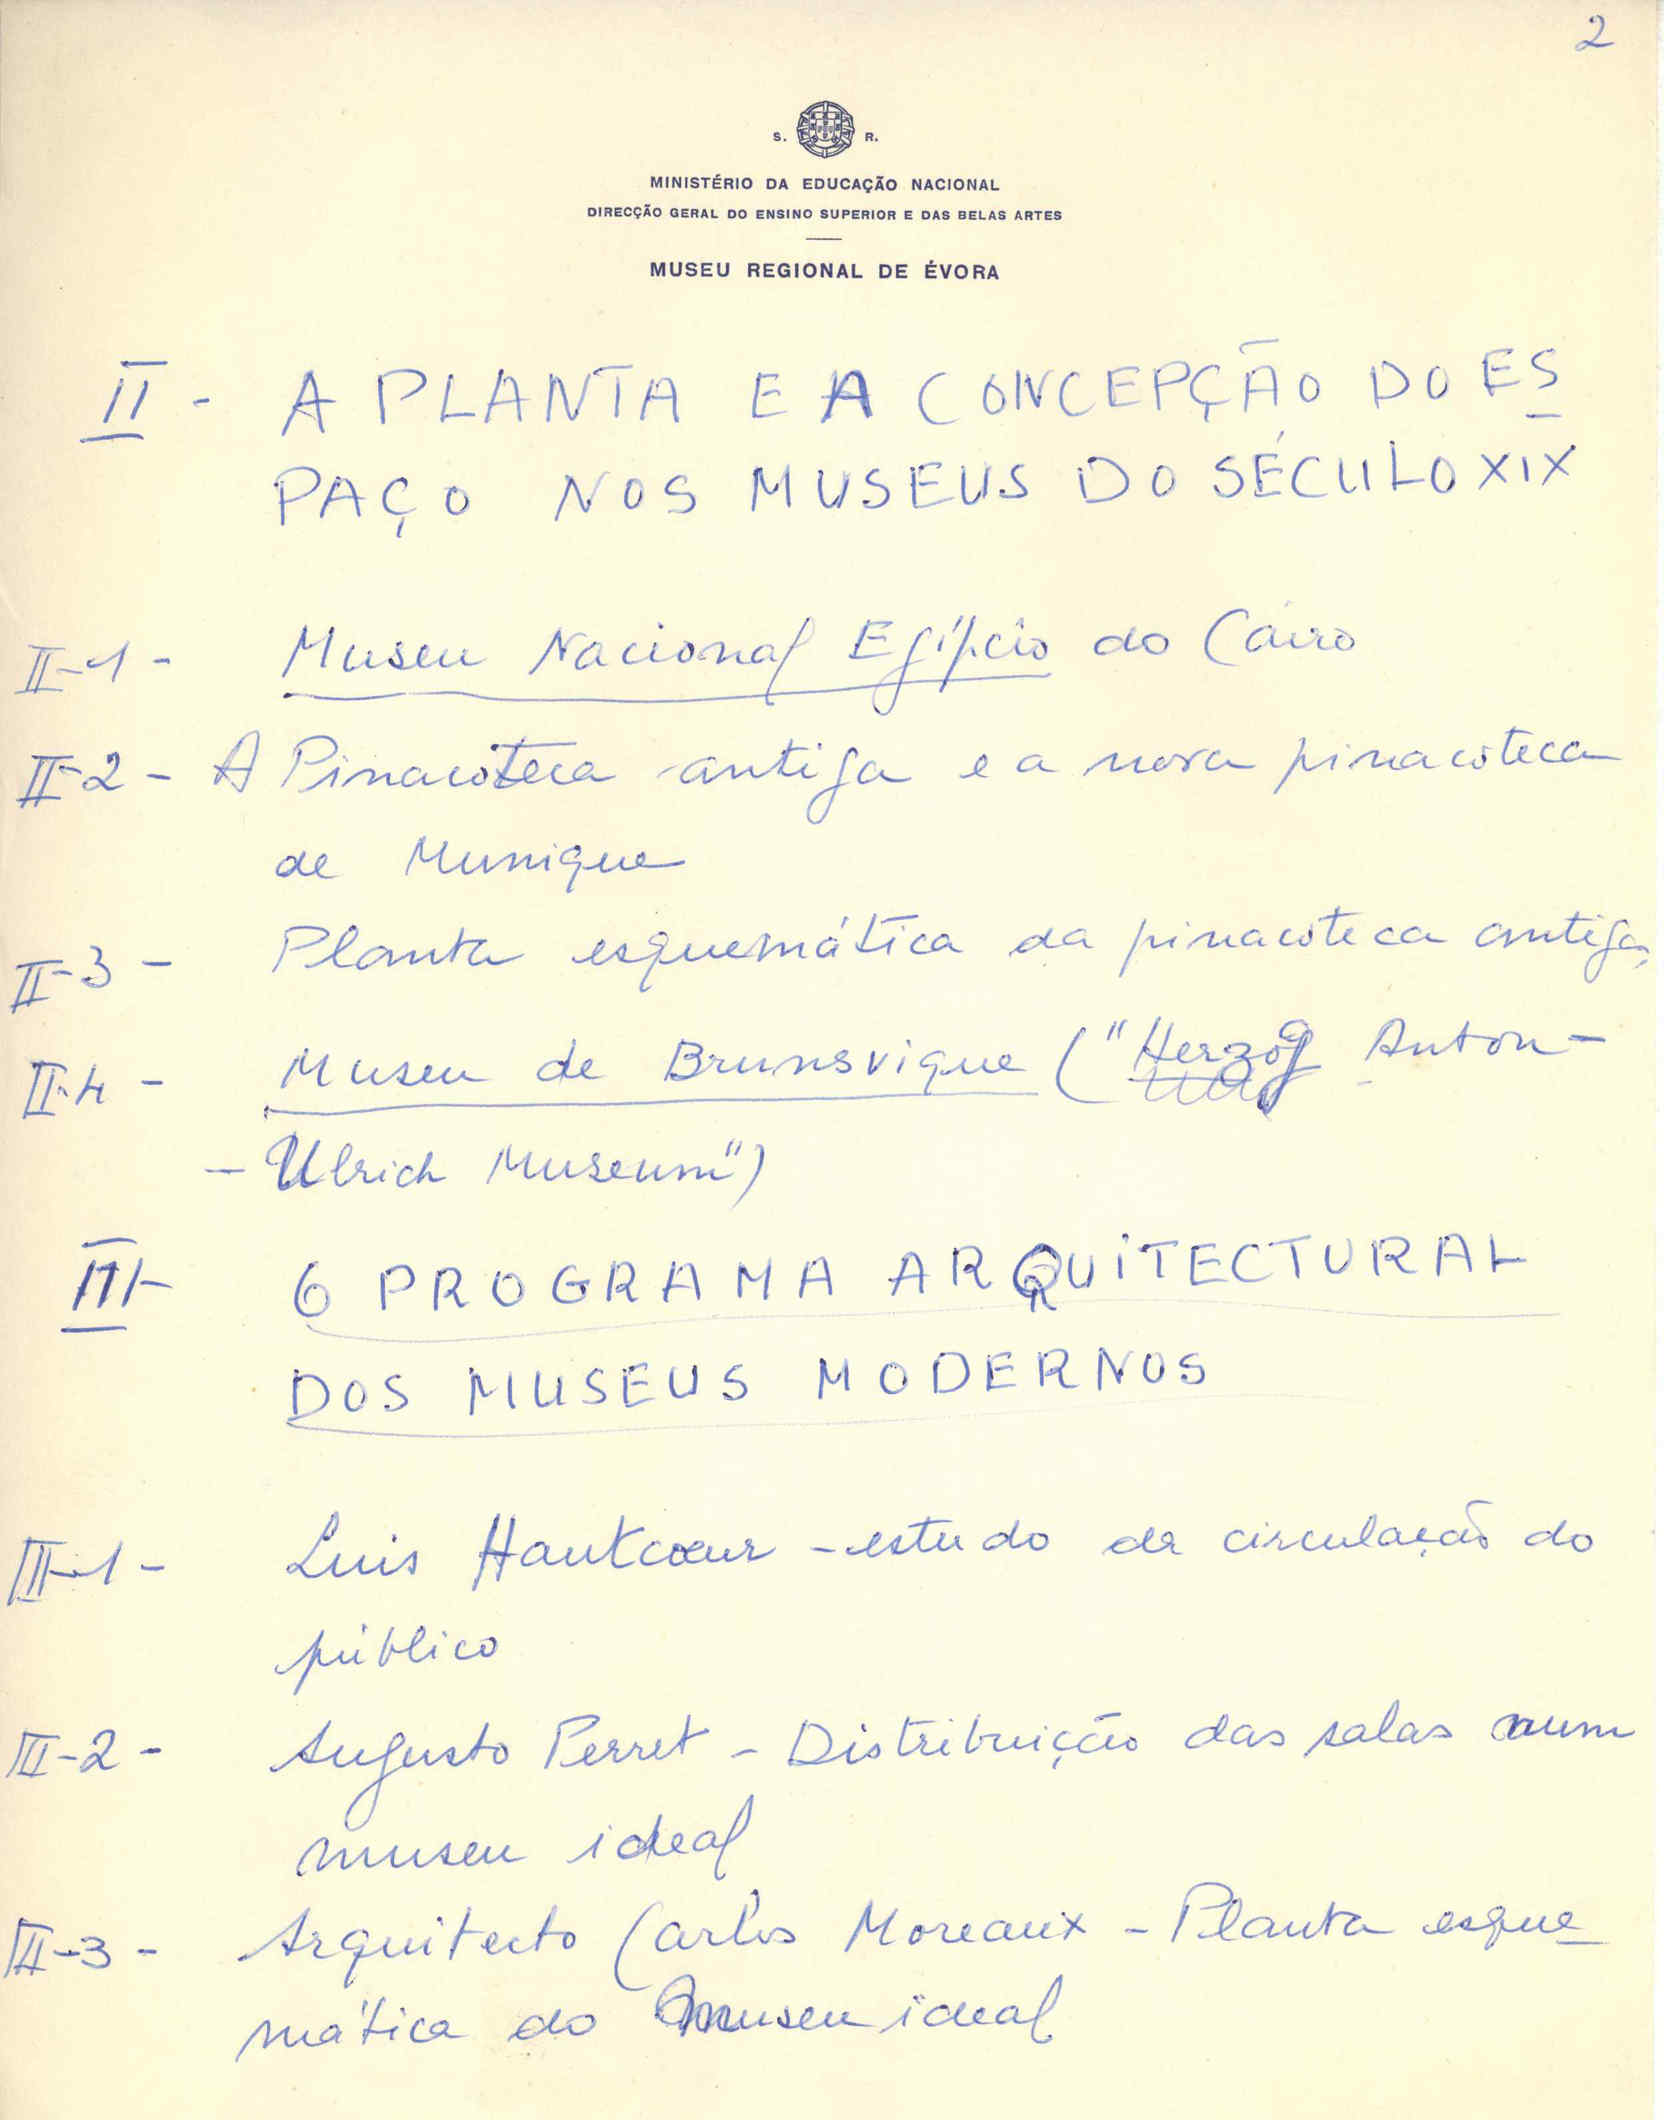 2
S. R.
MINISTÉRIO DA EDUCAÇÃO NACIONAL
DIRECÇÃO GERAL DO ENSINO SUPERIOR E DAS BELAS ARTES
MUSEU REGIONAL DE ÉVORA
II - A PLANTA E A CONCEPÇÃO DO ES
PAÇO NOS MUSEUS DO SÉCULO XIX
II-1 - Museu Nacional Egípcio do Cairo
II-2 - A Pinacoteca antiga e a nova pinacoteca
de Munique
II-3 - Planta esquemática da pinacoteca antiga
II-4 - Museu de Brunsvique ("Herzog Anton-
- Ulrich Museum")
III - O PROGRAMA ARQUITECTURAL
DOS MUSEUS MODERNOS
III-1 - Luis Hautcœur - estudo da circulação do
público
III-2 - Augusto Perret - Distribuição das salas num
museu ideal
III-3 - Arquitecto Carlos Moreaux - Planta esque
mática do museu ideal